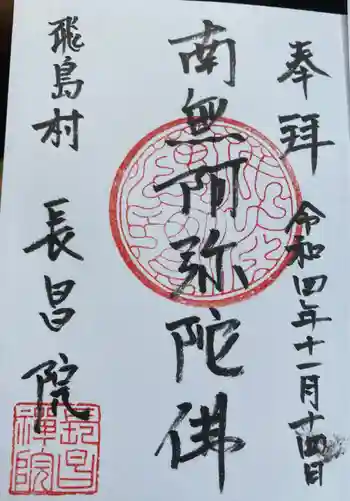 奉拜
令和四年十一月十四日
南無阿弥陀佛
飛島村
長昌院
長昌
禅院